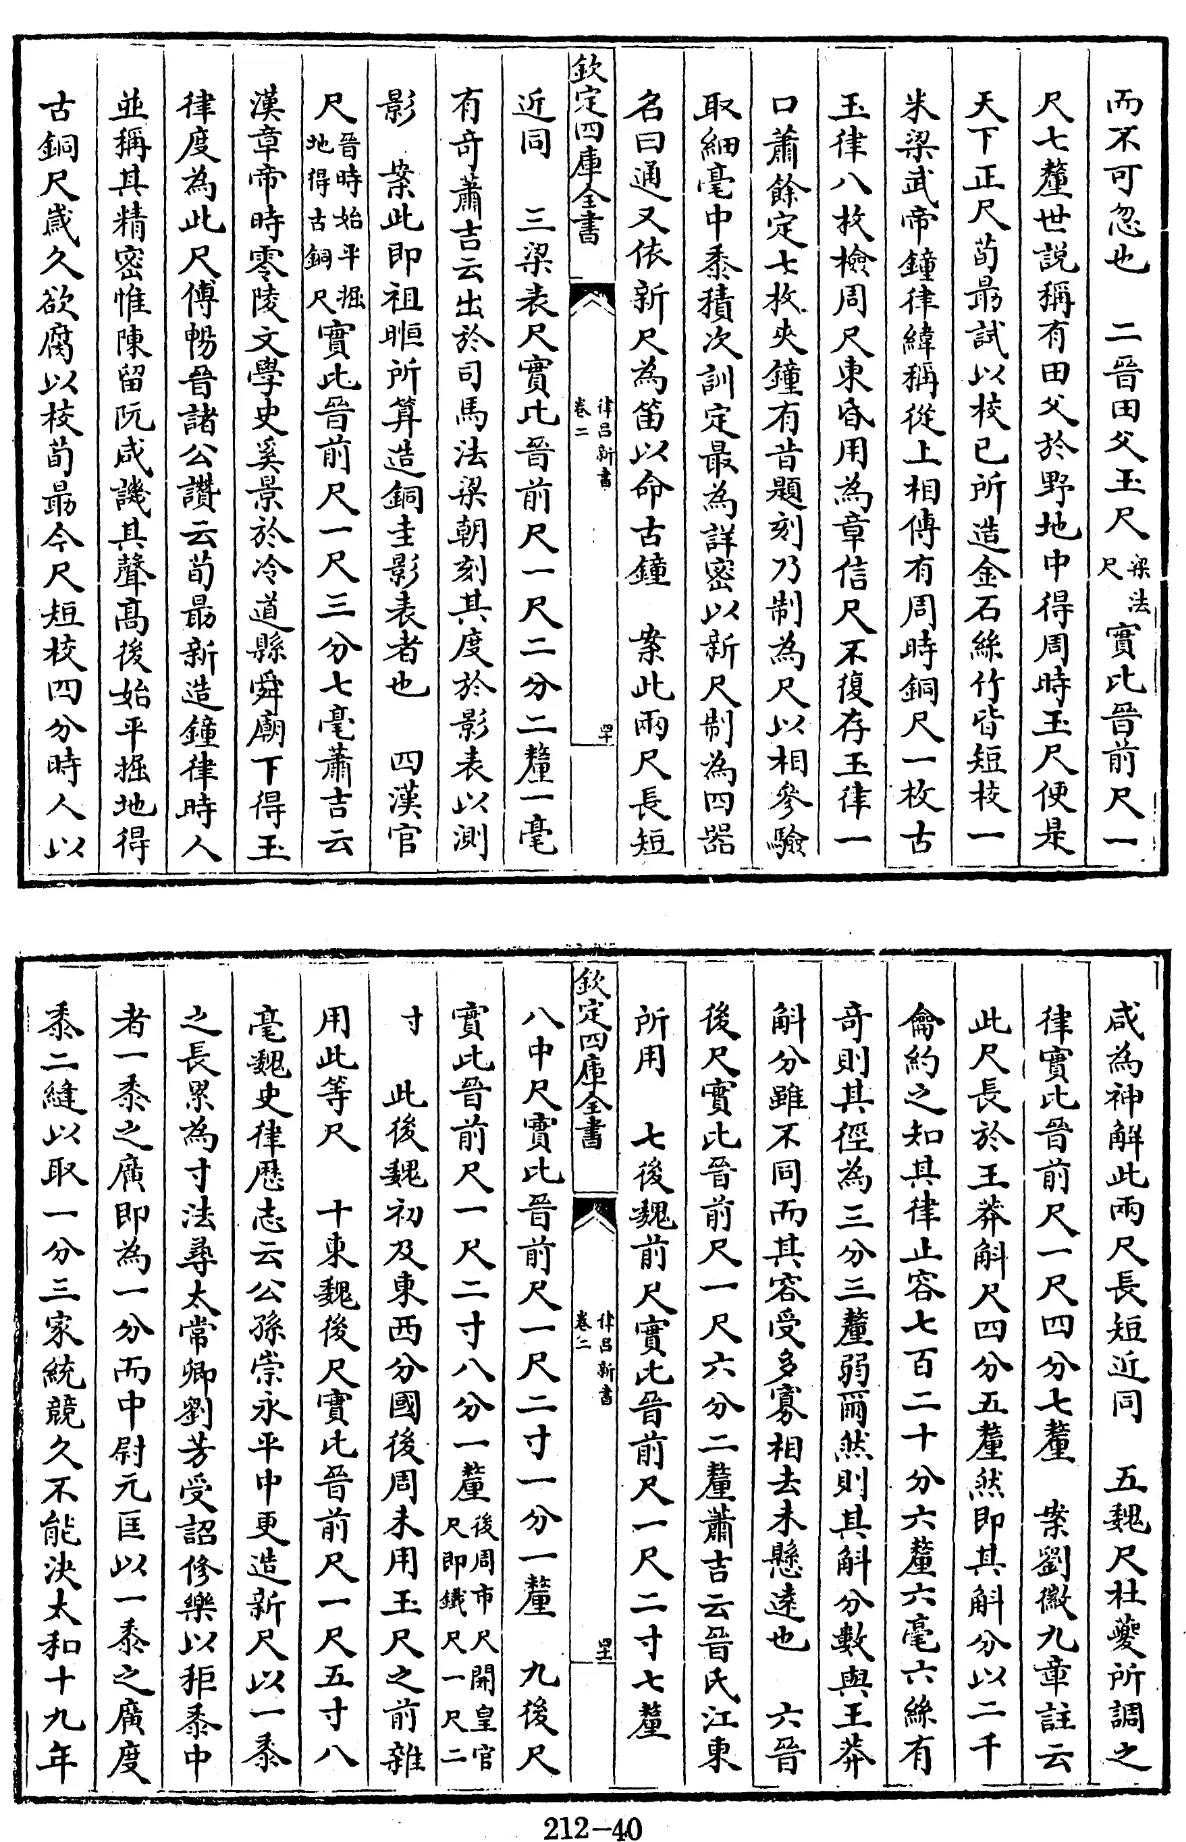 而不可忽也　二晉田父玉尺梁法尺實比晉前尺一
尺七釐世説稱有田父於野地中得周時玉尺便是
天下正尺荀朂試以校已所造金石絲竹皆短校一
米梁武帝鐘律緯稱從上相傳有周時銅尺一枚古
玉律八枚檢周尺東昏用為章信尺不復存玉律一
口蕭餘定七枚夾鐘有昔題刻乃制為尺以相參驗
取細毫中黍積次訓定最為詳密以新尺制為四器
名曰通又依新尺為笛以命古鐘　案此兩尺長短
欽定四庫全書
律呂新書
卷二
罕
近同　三梁表尺實比晉前尺一尺二分二釐一毫
有奇蕭吉云出於司馬法梁朝刻其度於影表以測
影　案此即祖暅所算造銅圭影表者也　四漢官
尺晉時始平掘地得古銅尺實比晉前尺一尺三分七毫蕭吉云
漢章帝時零陵文學史奚景於冷道縣舜廟下得玉
律度為此尺傅暢晉諸公讚云荀朂新造鐘律時人
並稱其精密惟陳留阮咸譏其聲高後始平掘地得
古銅尺歲久欲腐以校荀朂今尺短校四分時人以
咸為神解此兩尺長短近同　五魏尺杜夔所調之
律實比晉前尺一尺四分七釐　案劉徽九章註云
此尺長於王莽斛尺四分五釐然即其斛分以二千
龠約之知其律止容七百二十分六釐六毫六絲有
奇則其徑為三分三釐弱爾然則其斛分數與王莽
斛分雖不同而其容受多寡相去未懸逺也　六晉
後尺實比晉前尺一尺六分二釐蕭吉云晉氏江東
所用　七後魏前尺實比晉前尺一尺二寸七釐
欽定四庫全書
律呂新書
卷二
罒
八中尺實比晉前尺一尺二寸一分一釐　九後尺
實比晉前尺一尺二寸八分一釐後周市尺開皇官尺即鐵尺一尺二
寸　此後魏初及東西分國後周未用玉尺之前雜
用此等尺　十東魏後尺實比晉前尺一尺五寸八
毫魏史律歷志云公孫崇永平中更造新尺以一黍
之長累為寸法尋太常卿劉芳受詔修樂以秬黍中
者一黍之廣即為一分而中尉元匡以一黍之廣度
黍二縫以取一分三家統競久不能決太和十九年
212—40